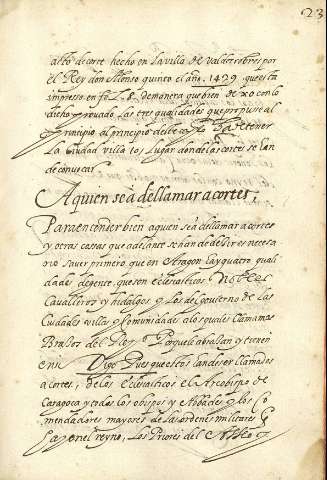 23
acto de corte hecho en la villa de valderobres por
el Rey don Alonso quinto el año. 1429 questa
impresso en fol. 8. de manera que bien dexo con lo
dicho provado las tres qualidades que propuse al
principio al principio deste cap.º ha de tener
La Ciudad villa los Lugar donde las cortes se han
de convocar
A quien se a de llamar a cortes,
Para entender bien a quien se a de llamar a cortes
y otras cossas que adelante se han de dezir es necesa
rio saver primero que en Aragon ay quatro quali
dades de gente, que son eclesiasticos. Nobles
Cavalleros y hidalgos y los del govierno de las
Ciudades villas y Comunidades a los quales llamamos
Brazos del Reyº Porque le abrassan y tienen
en si Digo Pues que estos an de ser llamados
a cortes, de los eclesiasticos el Arcobispo de
Caragoça y todos los obispos y Abbades y los Co
mendadores mayores de las ordenes militares q
ay en el reyno, Los Priores del